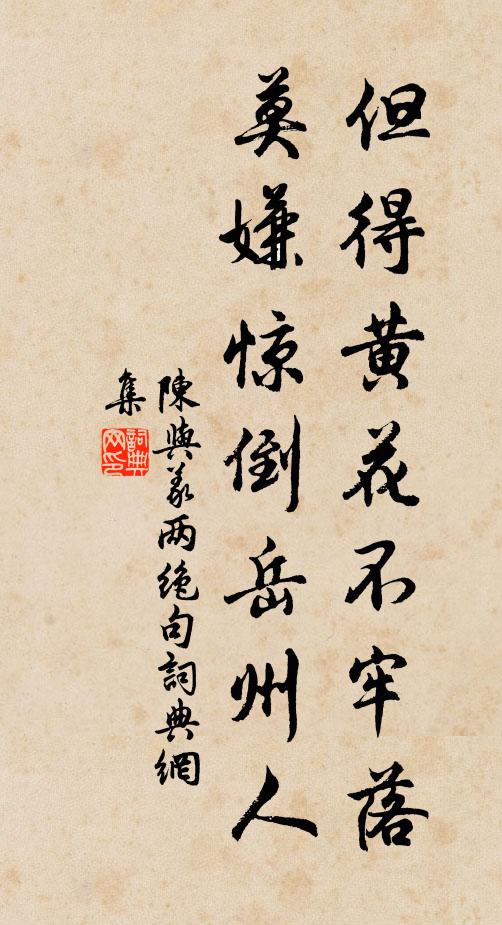 但得黄花不牢落
莫嫌惊倒岳州人
陳與義两绝句詞典網
集
詞典网印